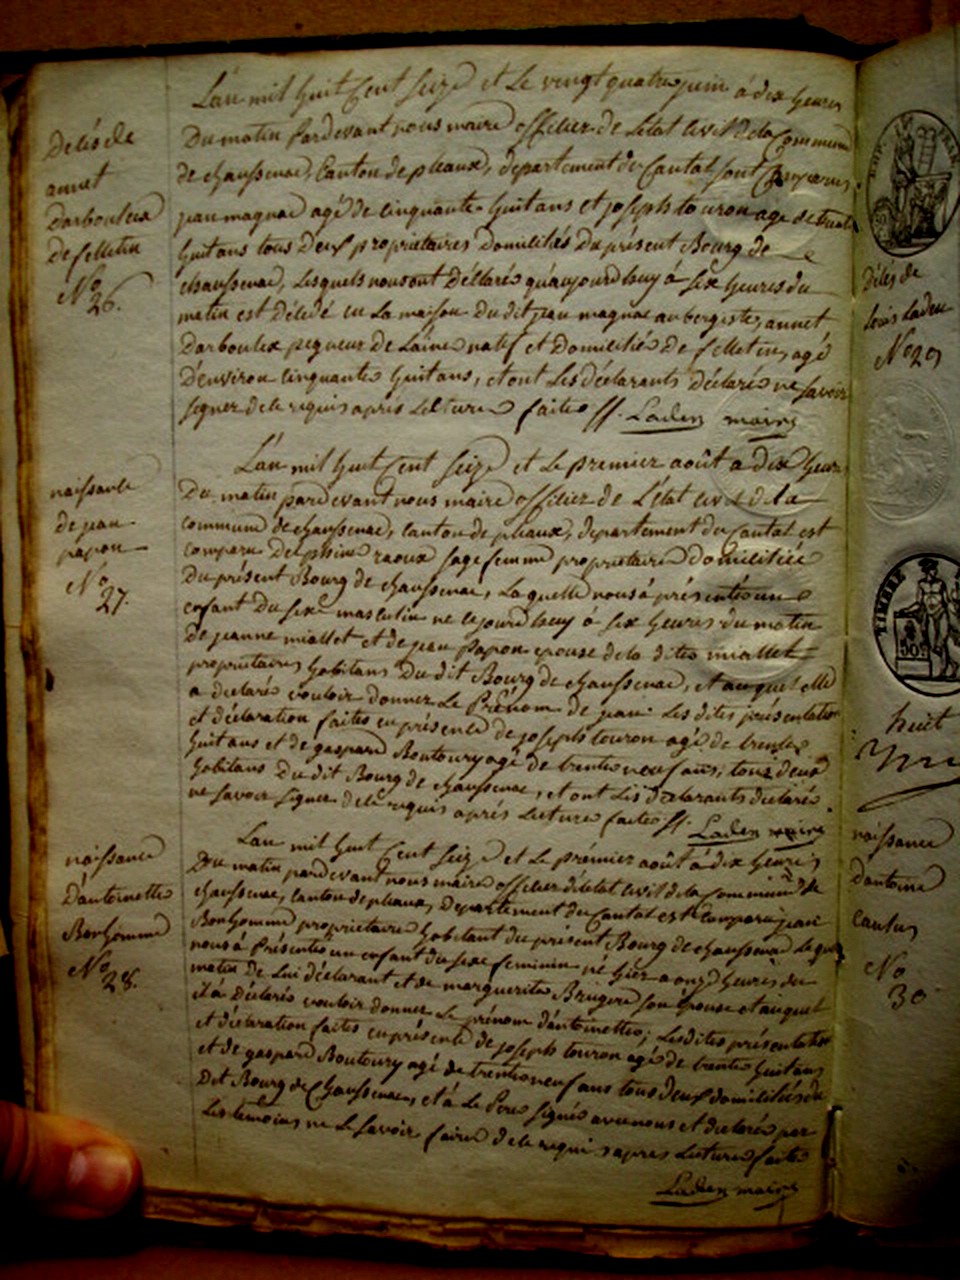 L'an mil huit Cent Seize et Le vingt quatre juin à dix heures
Du matin Pardevant nous maire officier de L'état Civil de la Commune
de chaussenac, Canton de pleaux, departement du Cantal sont Comparus
jean magnac agé de cinquante huit ans et joseph touron age de trente
huit ans tous Deux proprietaires Domiciliés du présent Bourg de
chaussenac, Lesquels nous ont Déclaré qu'aujourd'huy à Six heures du
matin est décédé en La maison du dit jean magnac aubergiste, annet
Darbouleix peigneur de Laine natif et Domicilié de felletin, agé
D'environ cinquante huit ans, et ont Les déclarants déclaré ne savoir
signer de ce requis après Lecture faite //. Laden maire
Décés de
annet
Darbouleix
De felletin
No
26.
L'an mil huit Cent Seize et Le premier août a dix heures
Du matin pardevant nous maire officier de L'état civil de la
commune de chaussenac, canton de pleaux, departement du Cantal est
comparu Delphine raoux sage femme proprietaire domiciliée
Du présent Bourg de chaussenac, Laquelle nous à présenté un
enfant Du sexe masculin né cejourd'huy à six heures du matin
De jeanne miallet et de jean Papon epouse de la dite miallet
proprietaires habitans Du dit Bourg de chaussenac, et auquel elle
a déclaré vouloir donner Le Prénom de jean. Les dites présentation
et déclaration faites en présence de joseph touron agé de trente
huit ans et de gaspard Boutoury agé de trente neuf ans, tous deux
habitans Du dit Bourg de chaussenac, et ont Les déclarants déclaré
ne savoir signer de ce requis après Lecture faite //. Laden maire
naissance
de jean
papon
No
27.
L'an mil huit Cent Seize et Le prémier août à dix heures
Du matin pardevant nous maire officier d'état civil de la Commune de
chaussenac, canton de pleaux, Departement du Cantal est Comparu jean
BonHomme proprietaire habitant du présent Bourg de chaussenac Lequel
nous à Présenté un enfant du sexe feminin né hier a onze heures du
matin de Lui déclarant et de marguerite Brugere son épouse et auquel
il à Déclaré vouloir donner Le prénom d'antoinette; Les dites présentation
et déclaration faites en présence de joseph touron agé de trente huit ans
et de gaspard Boutoury agé de trente neuf ans tous Deux domiciliés du
Dit Bourg de Chaussenac, et à Le Pere signé avec nous et déclaré par
Les temoins ne Le savoir faire de ce requis apres Lecture faite
Laden maire
naissance
D'antoinette
BonHomme
No
28.
Décés de
Louis Laden
No 29
TIMBRE
huit
naissance
D'antoine
No
30